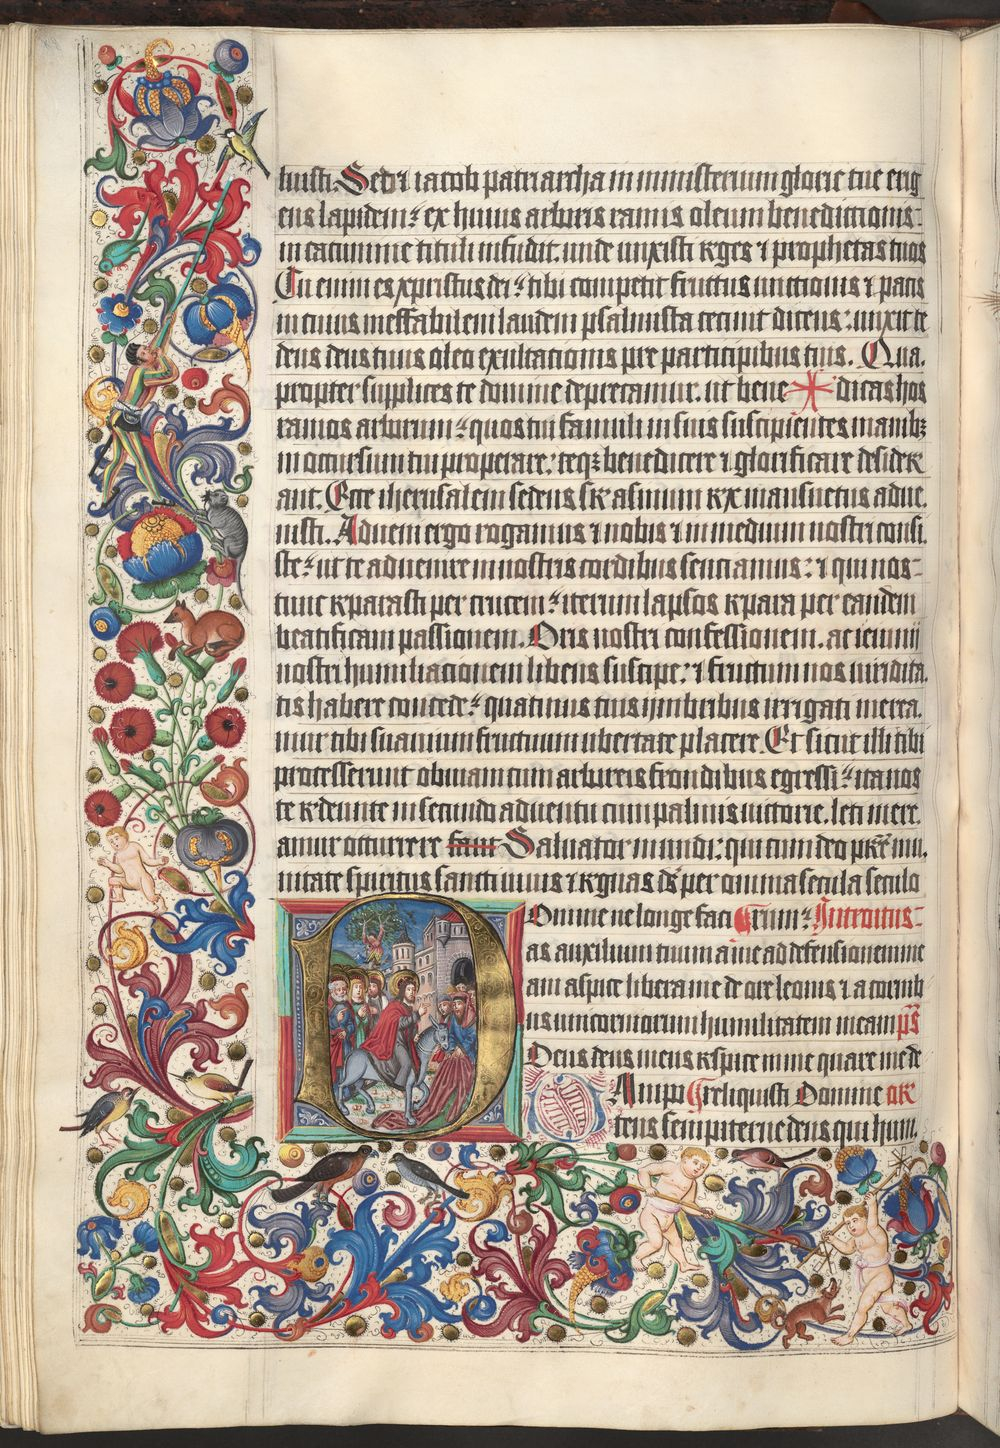 huisti. Sed ⁊ iacob patriarcha in ministerium glorie tue erig
ens lapidem: ex huius arboris ramis oleum benedictionis
in cacumine tituli infudit. unde unxisti reges ⁊ prophetas tuos
Tu enim es xpristus dei: tibi competit fructus unctionis ⁊ pacis
in cuius ineffabilem laudem psalmista cecinit dicens: unxit te
deus deus tuus oleo exultationis pre participibus tuis. Qua
propter supplices te domine deprecamur. ut bene ✠ dicas hos
ramos arborum: quos tui famuli in suis suscipientes manibꝫ
in occursum tui properare: teqꝫ benedicere ⁊ glorificare desider
ant. Ecce iherusalem sedens sr asinum rex mansuetus adue
nisti. Adueni ergo rogamus ⁊ nobis ⁊ in medium nostri consi
ste: ut te aduenire in nostris cordibus senciamus: ⁊ qui nos
tunc reparasti per crucem: iterum lapsos repara per eandem
beatificam passionem. Oris nostri confessionem. ac ieiunii
nostri humiliacionem libens suscipe: ⁊ fructum nos uiridita
tis habere concede: quatinus tuis ymbribus irrigati merea
mur tibi suauium fructuum ubertate placere. Et sicut illi tibi
processerunt obuiam cum arboreis frondibus egressi: ita nos
te redeunte in secundo aduentu cum palmis uictorie. leti mere
amur occurrere Saluator mundi: qui cum deo patre ⁊ in u
nitate spiritus sancti uiuis ⁊ regnas ds per omnia secula seculo
Domine ne longe faci rum: Introitus
as auxilium tuum a me ad defensionem me
am aspice libera me de ore leonis ⁊ a cornib
us unicorniorum humilitatem meam ps
Deus deus meus respice in me quare me de
Ampo reliquisti Domine or
S tens sempiterne deus qui hum.